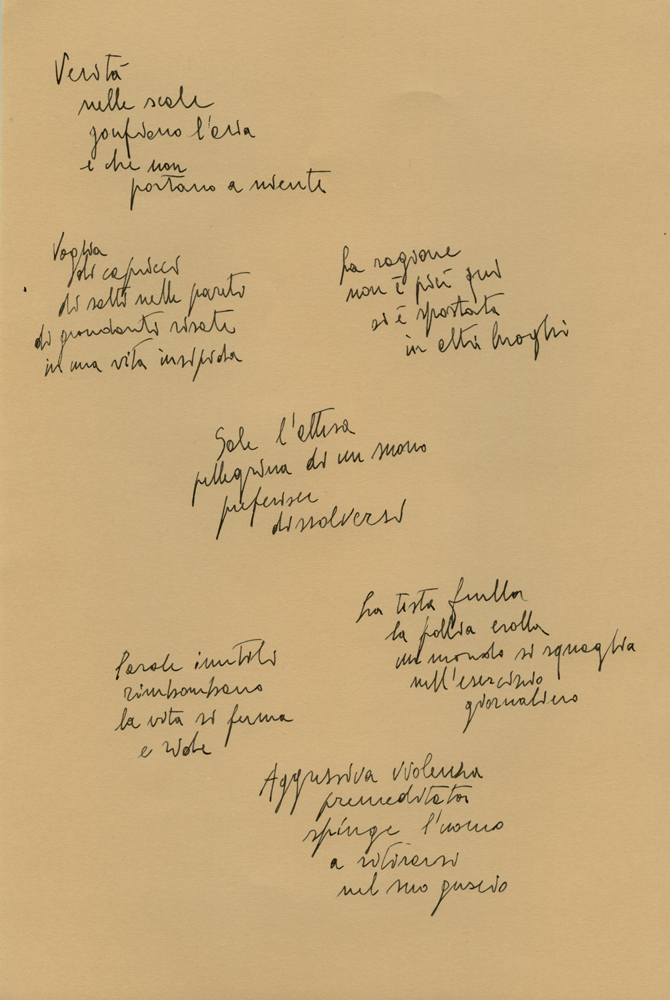 Verità
nelle scale
gonfiano l'aria
e che non
portano a niente
Voglia
di capricci
di salti nelle pareti
di grondanti risate
in una vita insipida
La ragione
non è più qui
si è spostata
in altri luoghi
Sale l'attesa
pellegrina di un suono
preferisce
dissolversi
La testa frulla
la pallia crolla
un mondo si squaglia
nell'esercizio
giornaliero
Parole inutili
rimbombano
la vita si ferma
e ride
Aggressiva violenza
premeditata
spinge l'uomo
a ritirarsi
nel suo guscio